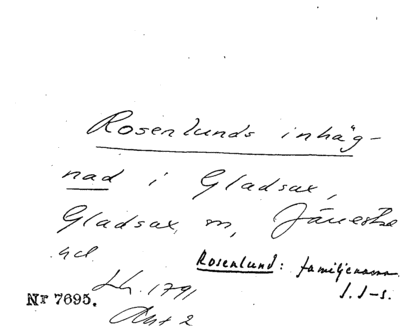 Rosenlunds inhäg-
nad i Gladsax,
Gladsax, sn, Järrestad
hd.
Rosenlund: familjenamn.
Lh. 1791
J. S-s.
Nr 7695. Akt 2